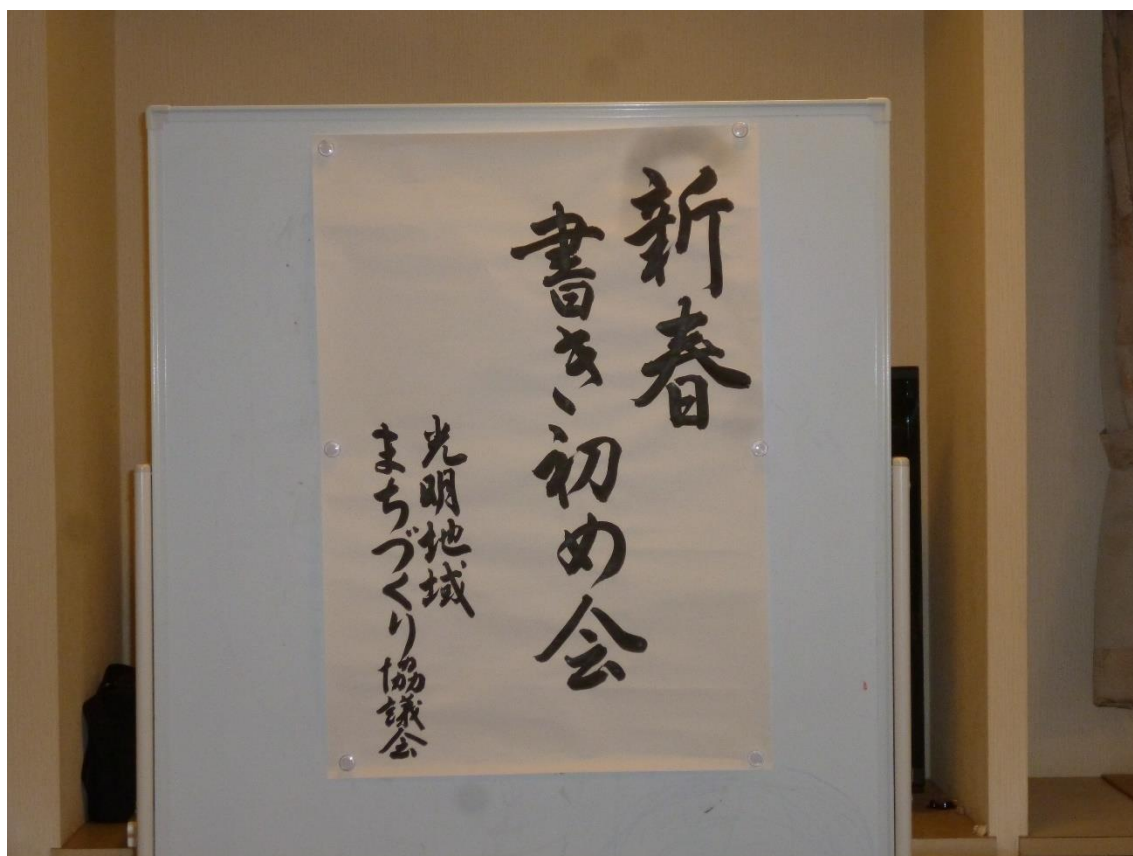 新春
書き初め会
光明地域
まちづくり協議会